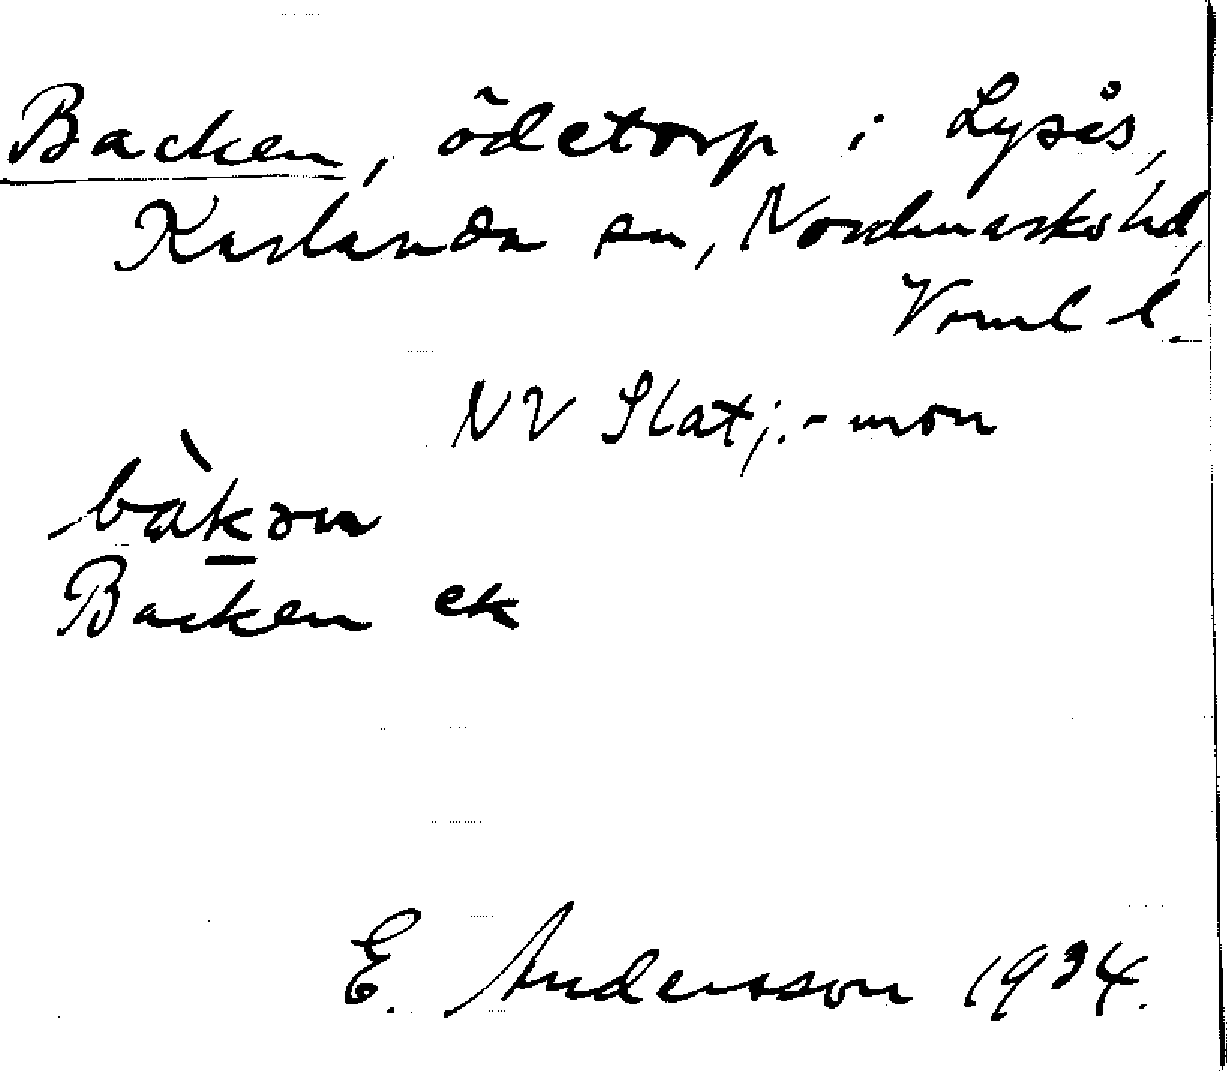 Backen, ödetorp i Lysås,
Karlanda sn, Nordmarks hd,
Vrml l.
NV Slatj.-mon
bàkən
Backen ek
E. Andersson 1934.